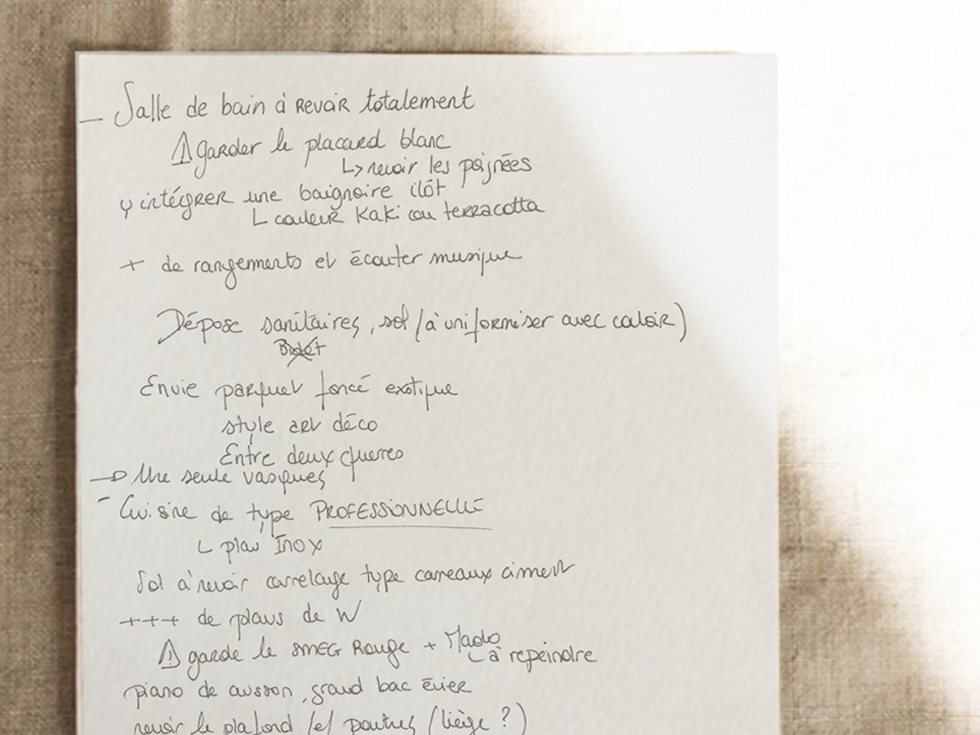 — Salle de bain à revoir totalement
⚠ garder le placard blanc
↳ revoir les poignées
y intégrer une baignoire ilôt
↳ couleur Kaki ou terracotta
+ de rangements et écouter musique
Dépose sanitaires, sol (à uniformiser avec couloir)
Bidet
Envie parquet foncé exotique
style art déco
Entre deux guerres
→ Une seule vasques
- Cuisine de type PROFESSIONNELLE
↳ plan Inox
Sol à revoir carrelage type carreaux ciment
+++ de plans de W
⚠ garde le SMEG Rouge + Mado
↳ à repeindre
piano de cuisson, grand bac évier
revoir le plafond /et poutres (liège ?)